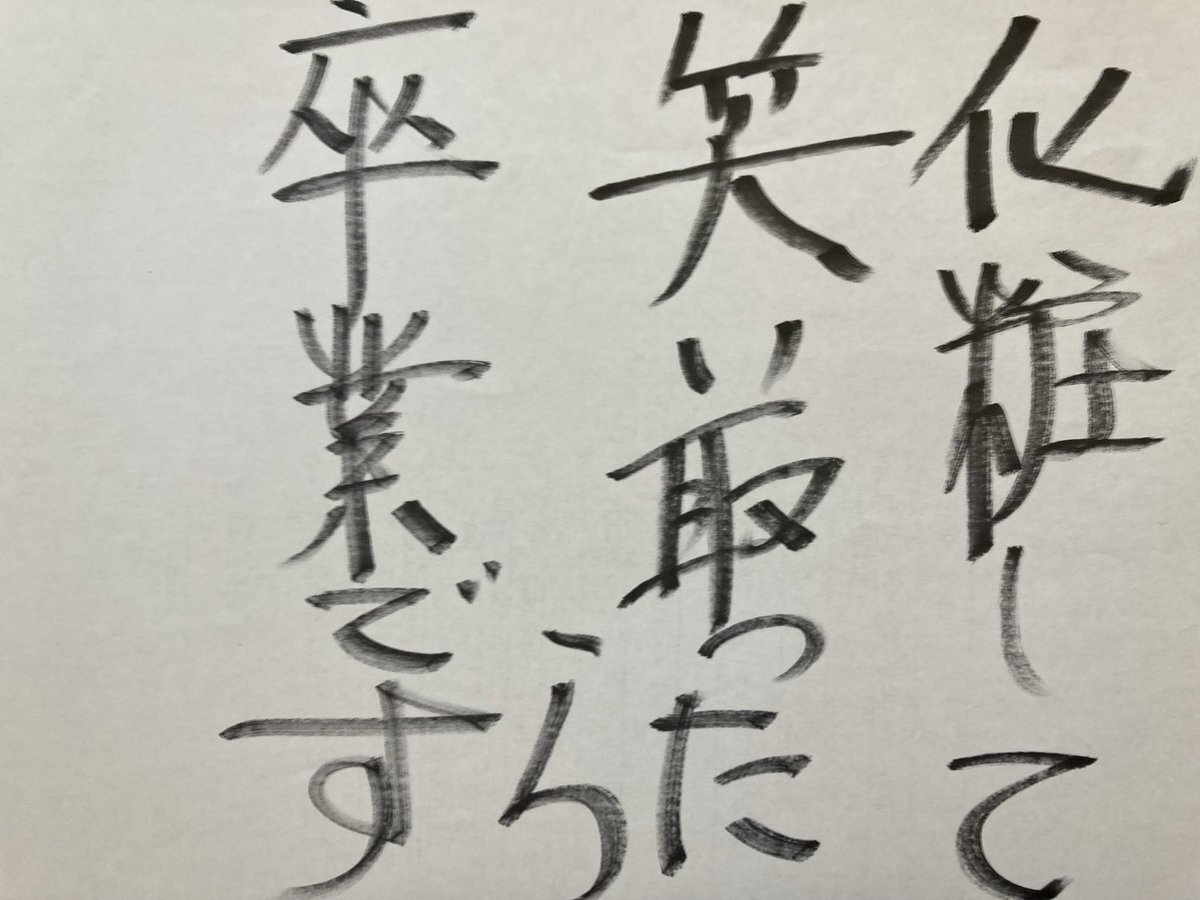 化粧して
笑い取ったら
卒業です